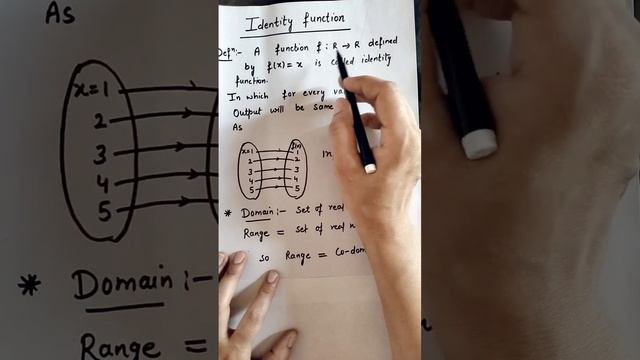 Identity function
Defⁿ:- A function f : R → R defined
by f(x) = x is called identity
function.
In which for every
Output will be same
As
x=1 f(x) 1
2 2
3 3
4 4
5 5
* Domain :- Set of real
Range = Set of real
So Range = Co-dom
As
x=1
2
3
4
5
* Domain :-
Range =